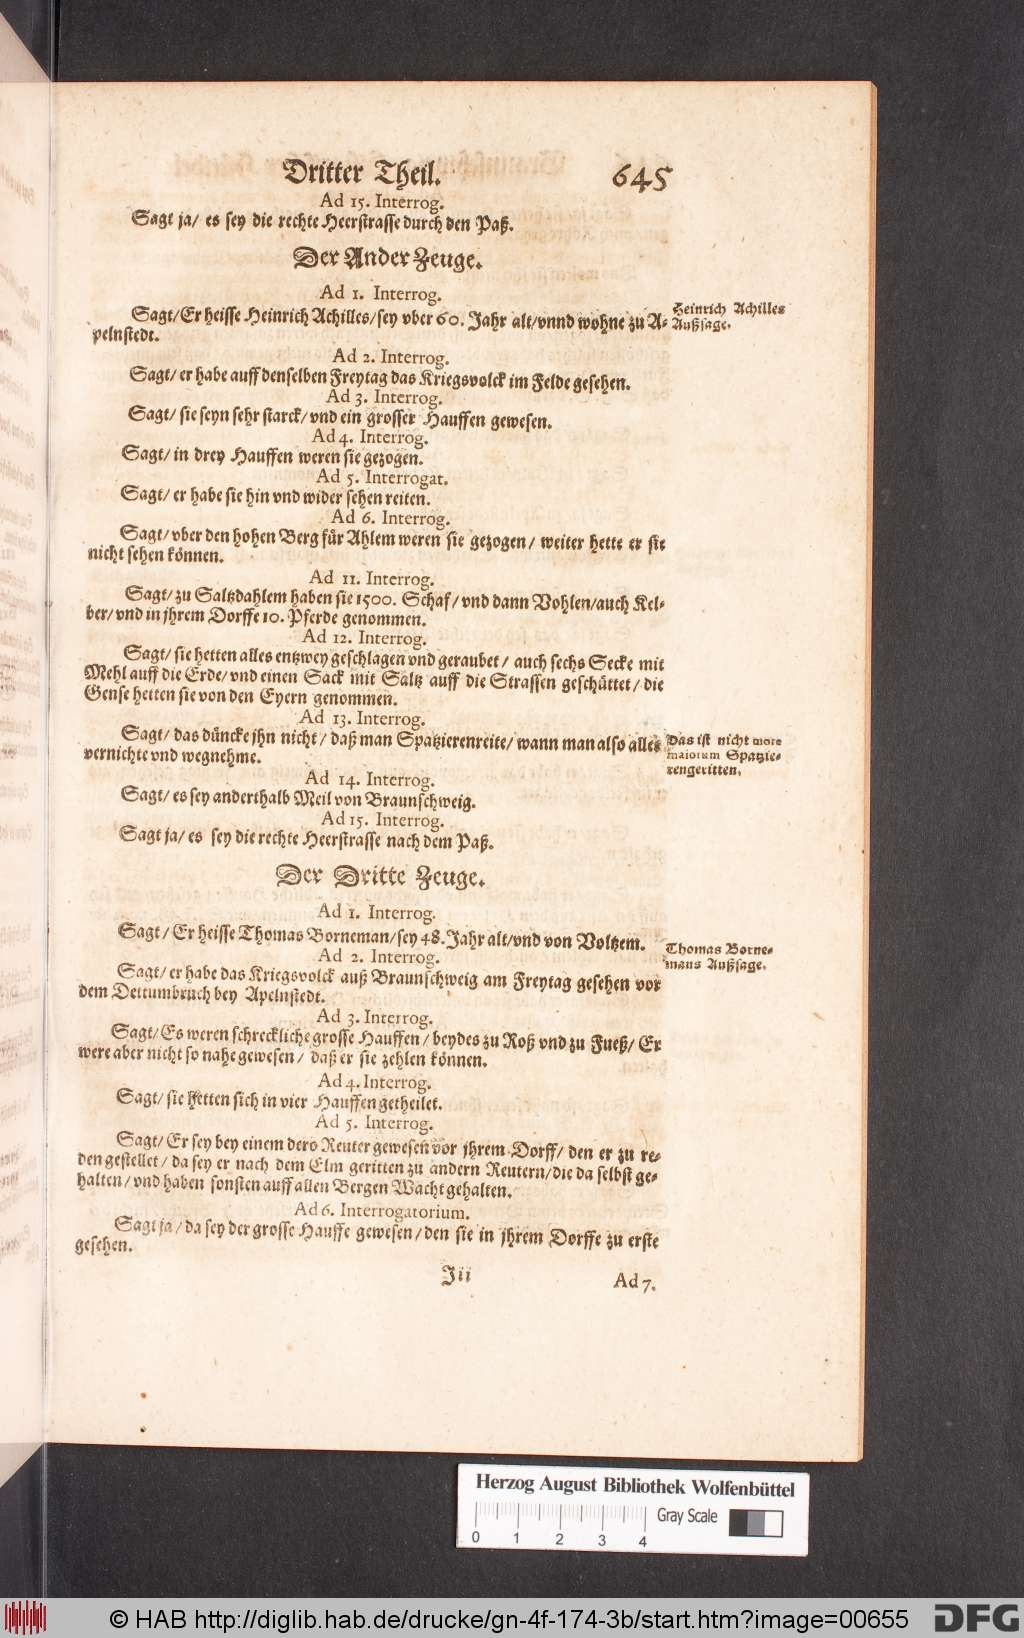 Dritter Theil. 645
Ad 15. Interrog.
Sagt ja/ es sey die rechte Heerstrasse durch den Paß.
Der Ander Zeuge.
Ad 1. Interrog.
Sagt/ Er heisse Heinrich Achilles/ sey vber 60. Jahr alt/ vnnd wohne zu A-
pelnstedt.
Heinrich Achilles
Außsage.
Ad 2. Interrog.
Sagt/ er habe auff denselben Freytag das Kriegsvolck im Felde gesehen.
Ad 3. Interrog.
Sagt/ sie seyn sehr starck/ vnd ein grosser Hauffen gewesen.
Ad 4. Interrog.
Sagt/ in drey Hauffen weren sie gezogen.
Ad 5. Interrogat.
Sagt/ er habe sie hin vnd wider sehen reiten.
Ad 6. Interrog.
Sagt/ vber den hohen Berg für Ahlem weren sie gezogen/ weiter hette er sie
nicht sehen können.
Ad 11. Interrog.
Sagt/ zu Saltzdahlem haben sie 1500. Schaf/ vnd dann Vohlen/ auch Kel-
ber/ vnd in jhrem Dorffe 10. Pferde genommen.
Ad 12. Interrog.
Sagt/ sie hetten alles entzwey geschlagen vnd geraubet/ auch sechs Secke mit
Mehl auff die Erde/ vnd einen Sack mit Saltz auff die Strassen geschüttet/ die
Gense hetten sie von den Eyern genommen.
Ad 13. Interrog.
Sagt/ das düncke jhn nicht/ daß man Spatzierenreite/ wann man also alles
vernichte vnd wegnehme.
Das ist nicht more
maiorum Spatzie-
rengeritten.
Ad 14. Interrog.
Sagt/ es sey anderthalb Meil von Braunschweig.
Ad 15. Interrog.
Sagt ja/ es sey die rechte Heerstrasse nach dem Paß.
Der Dritte Zeuge.
Ad 1. Interrog.
Sagt/ Er heisse Thomas Borneman/ sey 48. Jahr alt/ vnd von Voltzem.
Thomas Borne-
mans Außsage.
Ad 2. Interrog.
Sagt/ er habe das Kriegsvolck auß Braunschweig am Freytag gesehen vor
dem Dettumbruch bey Apelnstedt.
Ad 3. Interrog.
Sagt/ Es weren schreckliche grosse Hauffen/ beydes zu Roß vnd zu Fueß/ Er
were aber nicht so nahe gewesen/ daß er sie zehlen können.
Ad 4. Interrog.
Sagt/ sie hetten sich in vier Hauffen getheilet.
Ad 5. Interrog.
Sagt/ Er sey bey einem dero Reuter gewesen vor jhrem Dorff/ den er zu re-
den gestellet/ da sey er nach dem Elm geritten zu andern Reutern/ die da selbst ge-
halten/ vnd haben sonsten auff allen Bergen Wacht gehalten.
Ad 6. Interrogatorium.
Sagt ja/ da sey der grosse Hauffe gewesen/ den sie in jhrem Dorffe zu erste
gesehen.
Jii Ad 7.
Herzog August Bibliothek Wolfenbüttel
Gray Scale
0 1 2 3 4
© HAB http://diglib.hab.de/drucke/gn-4f-174-3b/start.htm?image=00655
DFG